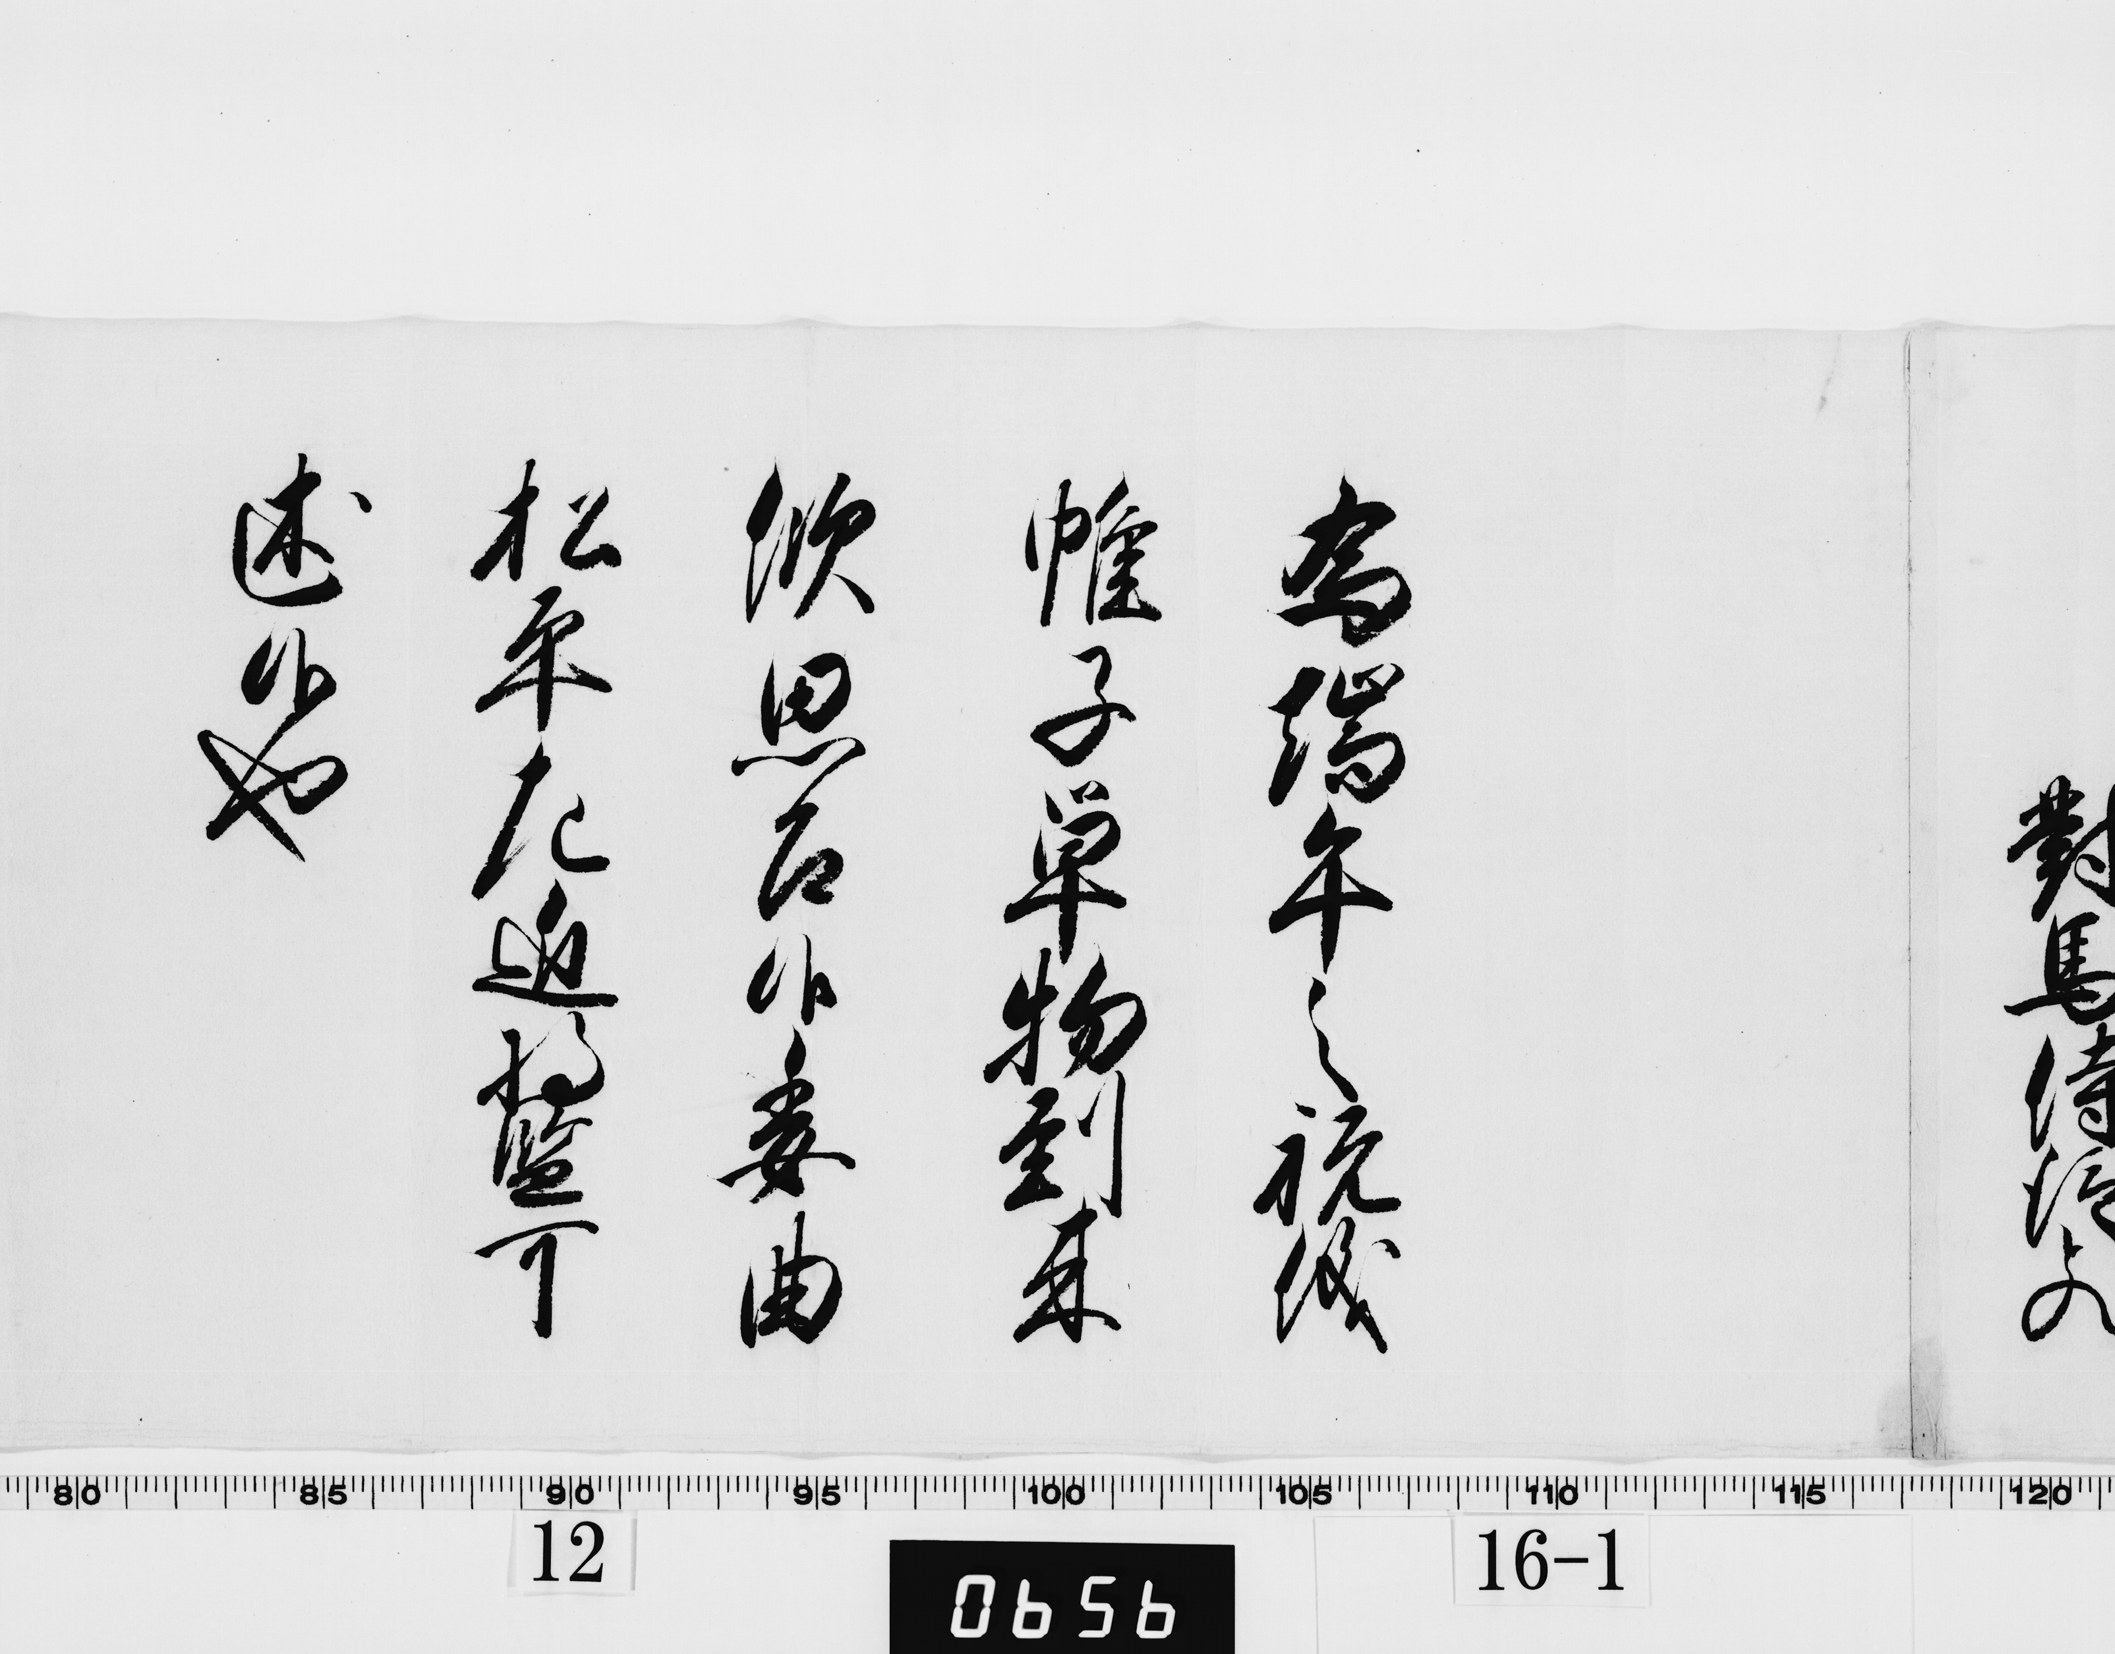 對馬侍従とのへ
為端午之祝儀
帷子単物到来
欣思召候委曲
松平右近将監可
述候也
80 85 90 95 100 105 110 115 120
12
16-1
0656